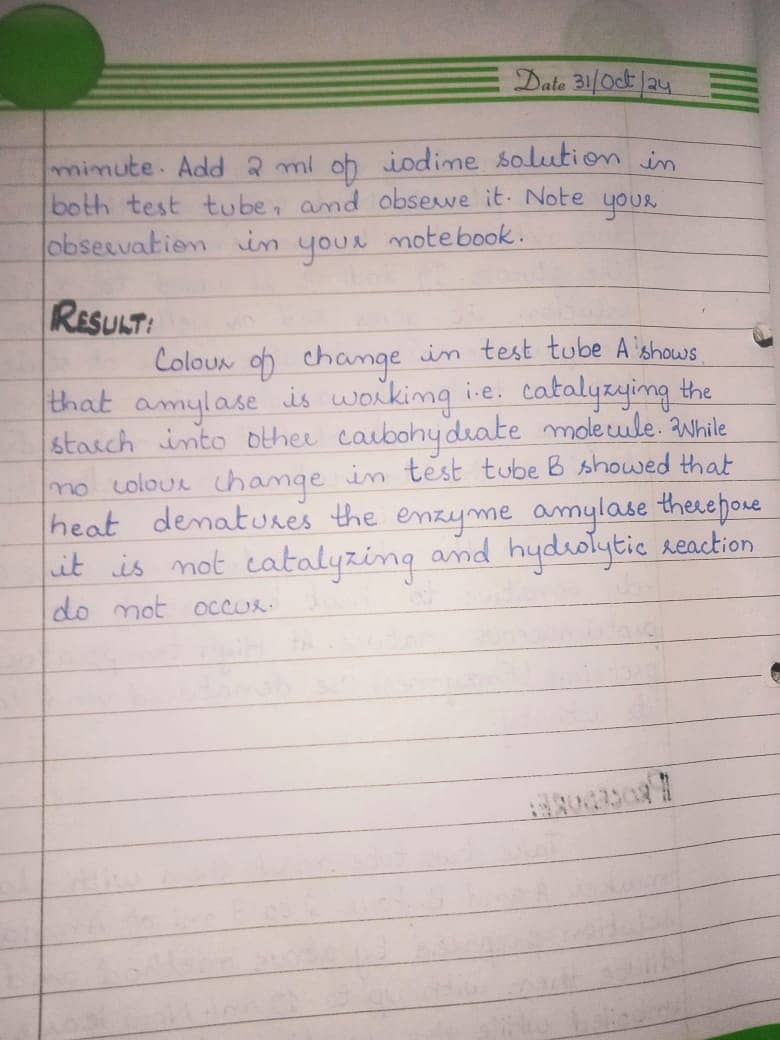 Date 31/Oct/24
minute. Add 2 ml of iodine solution in
both test tube, and observe it. Note your
observation in your notebook.
RESULT:
Colour of change in test tube A shows
that amylase is working i.e. catalyzying the
starch into other carbohydrate molecule. While
no colour change in test tube B showed that
heat denatures the enzyme amylase therefore
it is not catalyzing and hydrolytic reaction
do not occur.
PROCEDURE: